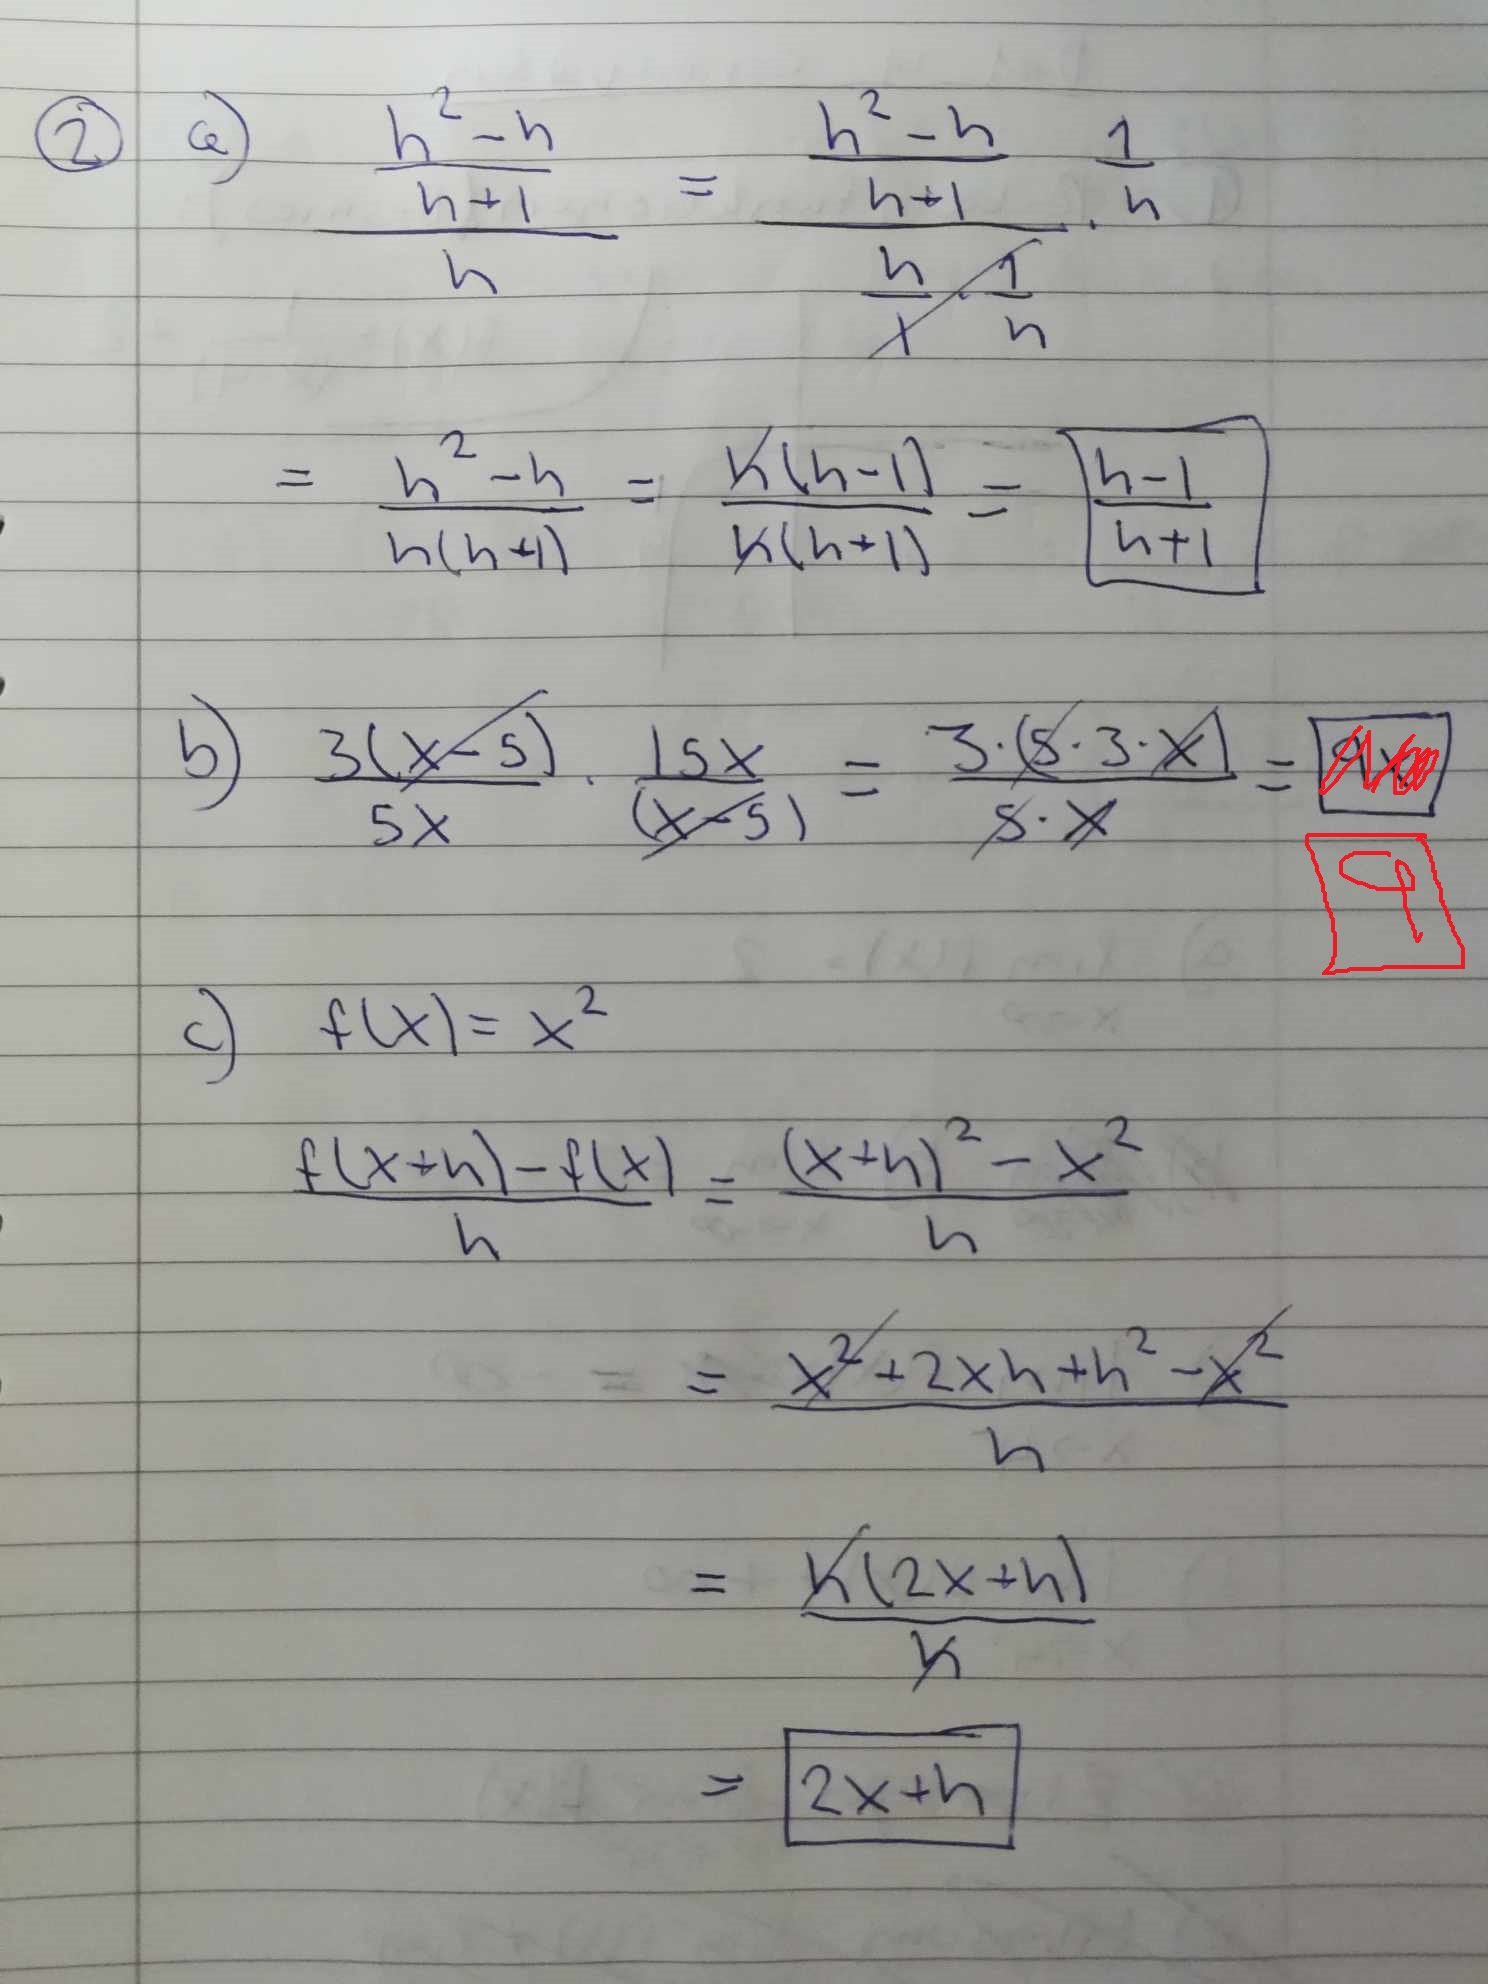 ② a) \frac{\frac{h^2-h}{h+1}}{h} = \frac{\frac{h^2-h}{h+1} \cdot \frac{1}{h}}{\frac{h}{1} \cdot \frac{1}{h}}
= \frac{h^2-h}{h(h+1)} = \frac{h(h-1)}{h(h+1)} = \frac{h-1}{h+1}
b) \frac{3(x-5)}{5x} \cdot \frac{15x}{(x-5)} = \frac{3 \cdot (5 \cdot 3 \cdot x)}{5 \cdot x} =
9
c) f(x) = x^2
\frac{f(x+h)-f(x)}{h} = \frac{(x+h)^2-x^2}{h}
= \frac{x^2+2xh+h^2-x^2}{h}
= \frac{h(2x+h)}{h}
= 2x+h